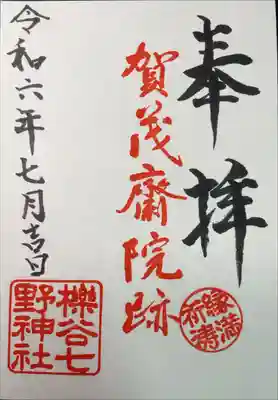 奉拝
賀茂齋院跡
縁満
祈禱
令和六年七月吉日
櫟谷七
野神社